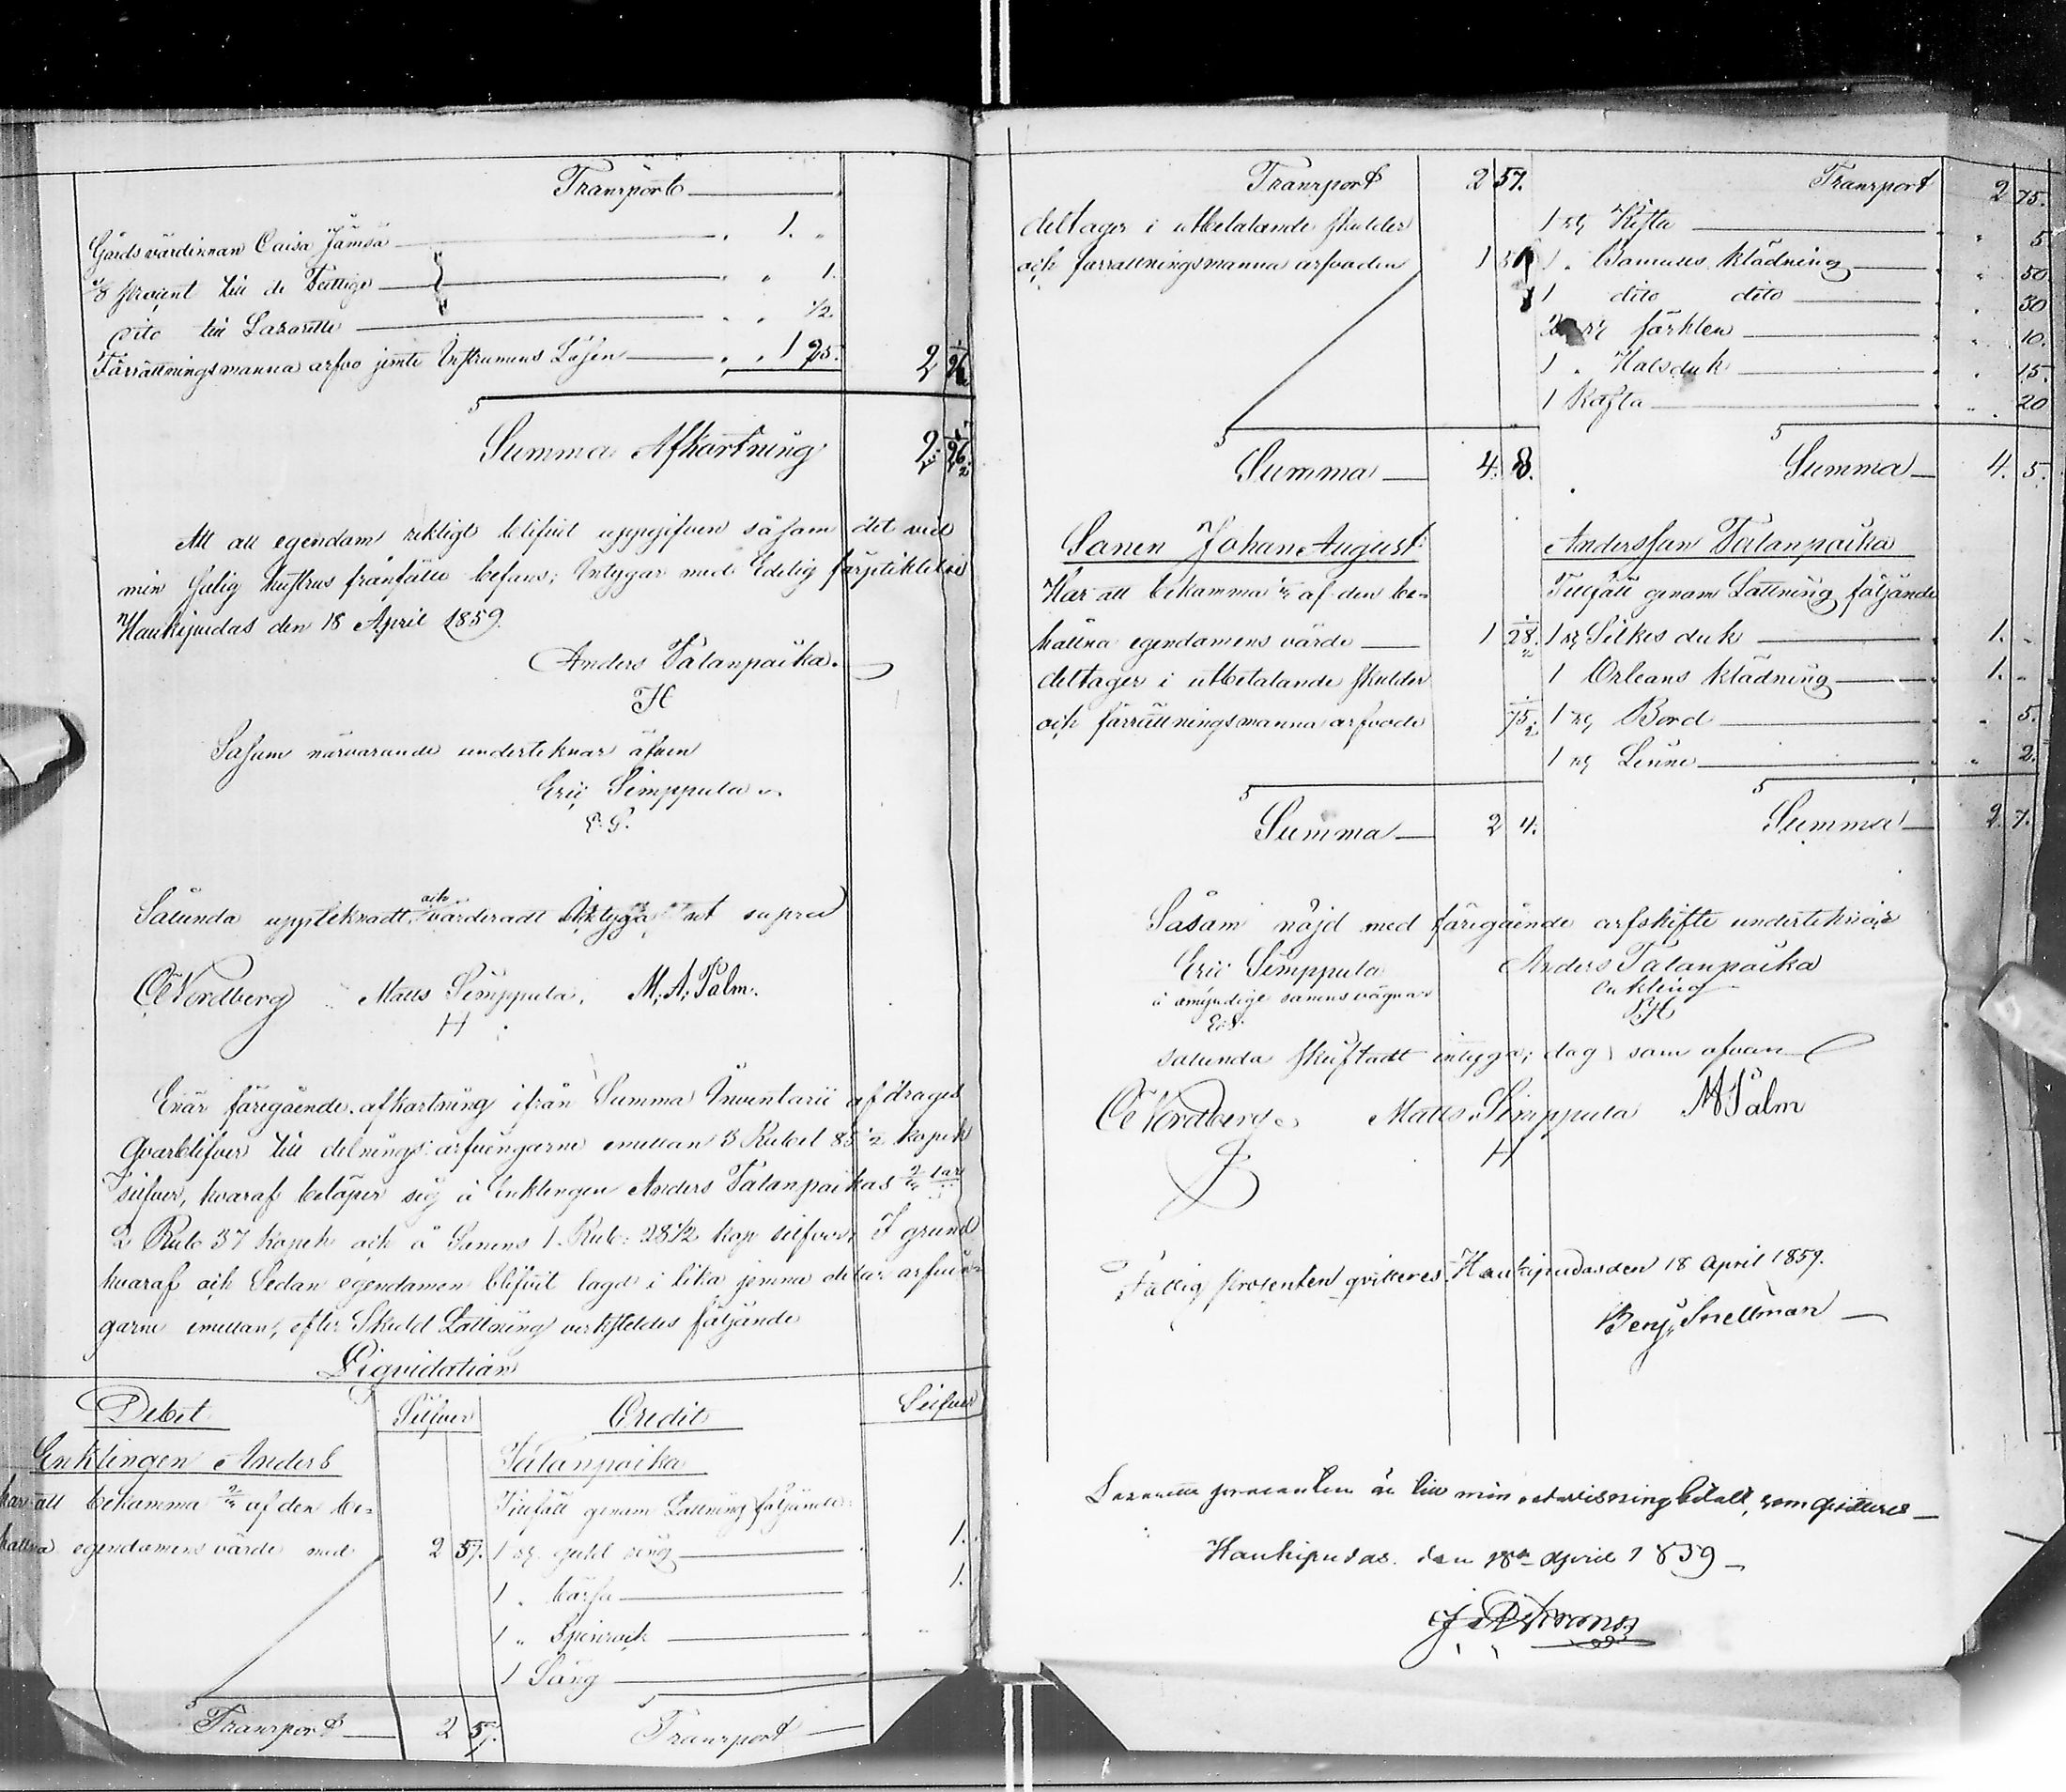 Transport
Gårdsvärdinnan Caisa Jämsä 1. "
1/8 procent till de Fattige " 1.
Dito till Lazarette " 1/2.
Förrättningsmanna arfvo jemte Instrumens Lösen " 1 25. 2 26 1/2
Summa Afkortning 2. 26 1/2.
Att all egendom riktigt blifvit uppgifven såsom det vid
min Salig hustrus frånfälle befans; Intygar med Edelig förpliktelse
Haukipudas den 18 April 1859.
Anders Talanpoika.
Såsom närvarande underteknar äfven
Eric Simppula
E. S.
Sålunda uppteknadt och värderadt Intyga ut supra
CE Nordberg Matts Simppula, M. A. Palm.
Enär föregående afkortning ifrån Summa Inventarii afdrages
Qvarblifver till delnings arfvingarne emellan 3 Rubel 85 1/2 kopek
silfver, hvaraf belöper sig å Enklingen Anders Talanpoikas 2/3
2 Rub 57 kopek och å Sonens 1 Rub: 28 1/2 kop silfver, I grund
hvaraf och Sedan egendomen blifvit lagd i lika jemna delar arfvin
garne emellan, efter Skedd Lottning verksteldes följande
Liqvidation
Debet Silfver Credit Silfver
Enklingen Anders Talanpoika
har att bekomma 2/3 af den be= Tillfält genom Lottning följande
hållna egendomens värde med 2 57. 1 st guld ring 1.
1 " börsa 1.
1 " Spinrock
1 Säng
Transport 2 57. Transport
Transport 2 57. Transport 2 75.
deltager i utbetalande skulder 1 st Kista " 5
och förrättningsmanna arfvoden 1 51 1 " Bomulls klädning " 50
1 dito dito " 30
st förklen " 10.
1 " Halsduk " 15.
1 Kofta " 20
Summa 4. 8. Summa 4. 5.
Sonen Johan August Andersson Talanpoika
Har att bekomma 1/3 af den be= Tillfält genom Lottning följande
hållna egendomens värde 1 28 1/2 1 st Silkes duk 1. "
deltager i utbetalande skulder 1 Orleans klädning 1. "
och förrättningsmanna arfvode 75 1/2 1 st Bord " 5.
1 st " 2.
Summa 2 4. Summa 2. 7.
Såsom nöjd med föregående arfskifte underteknar
Eric Simppula Anders Talanpoika
å omyndige sonens vägnar enkling
E. S.
sålunda skiftadt intyga; dag som ofvan
CE Nordberg Matts Simppula MAPalm
Fattig procenten qvitteres. Haukipudas den 18 April 1859.
Benj. Snellman
procenten är till min redovisning betalt, som qvitteres
Haukipudas den 18de April 1859